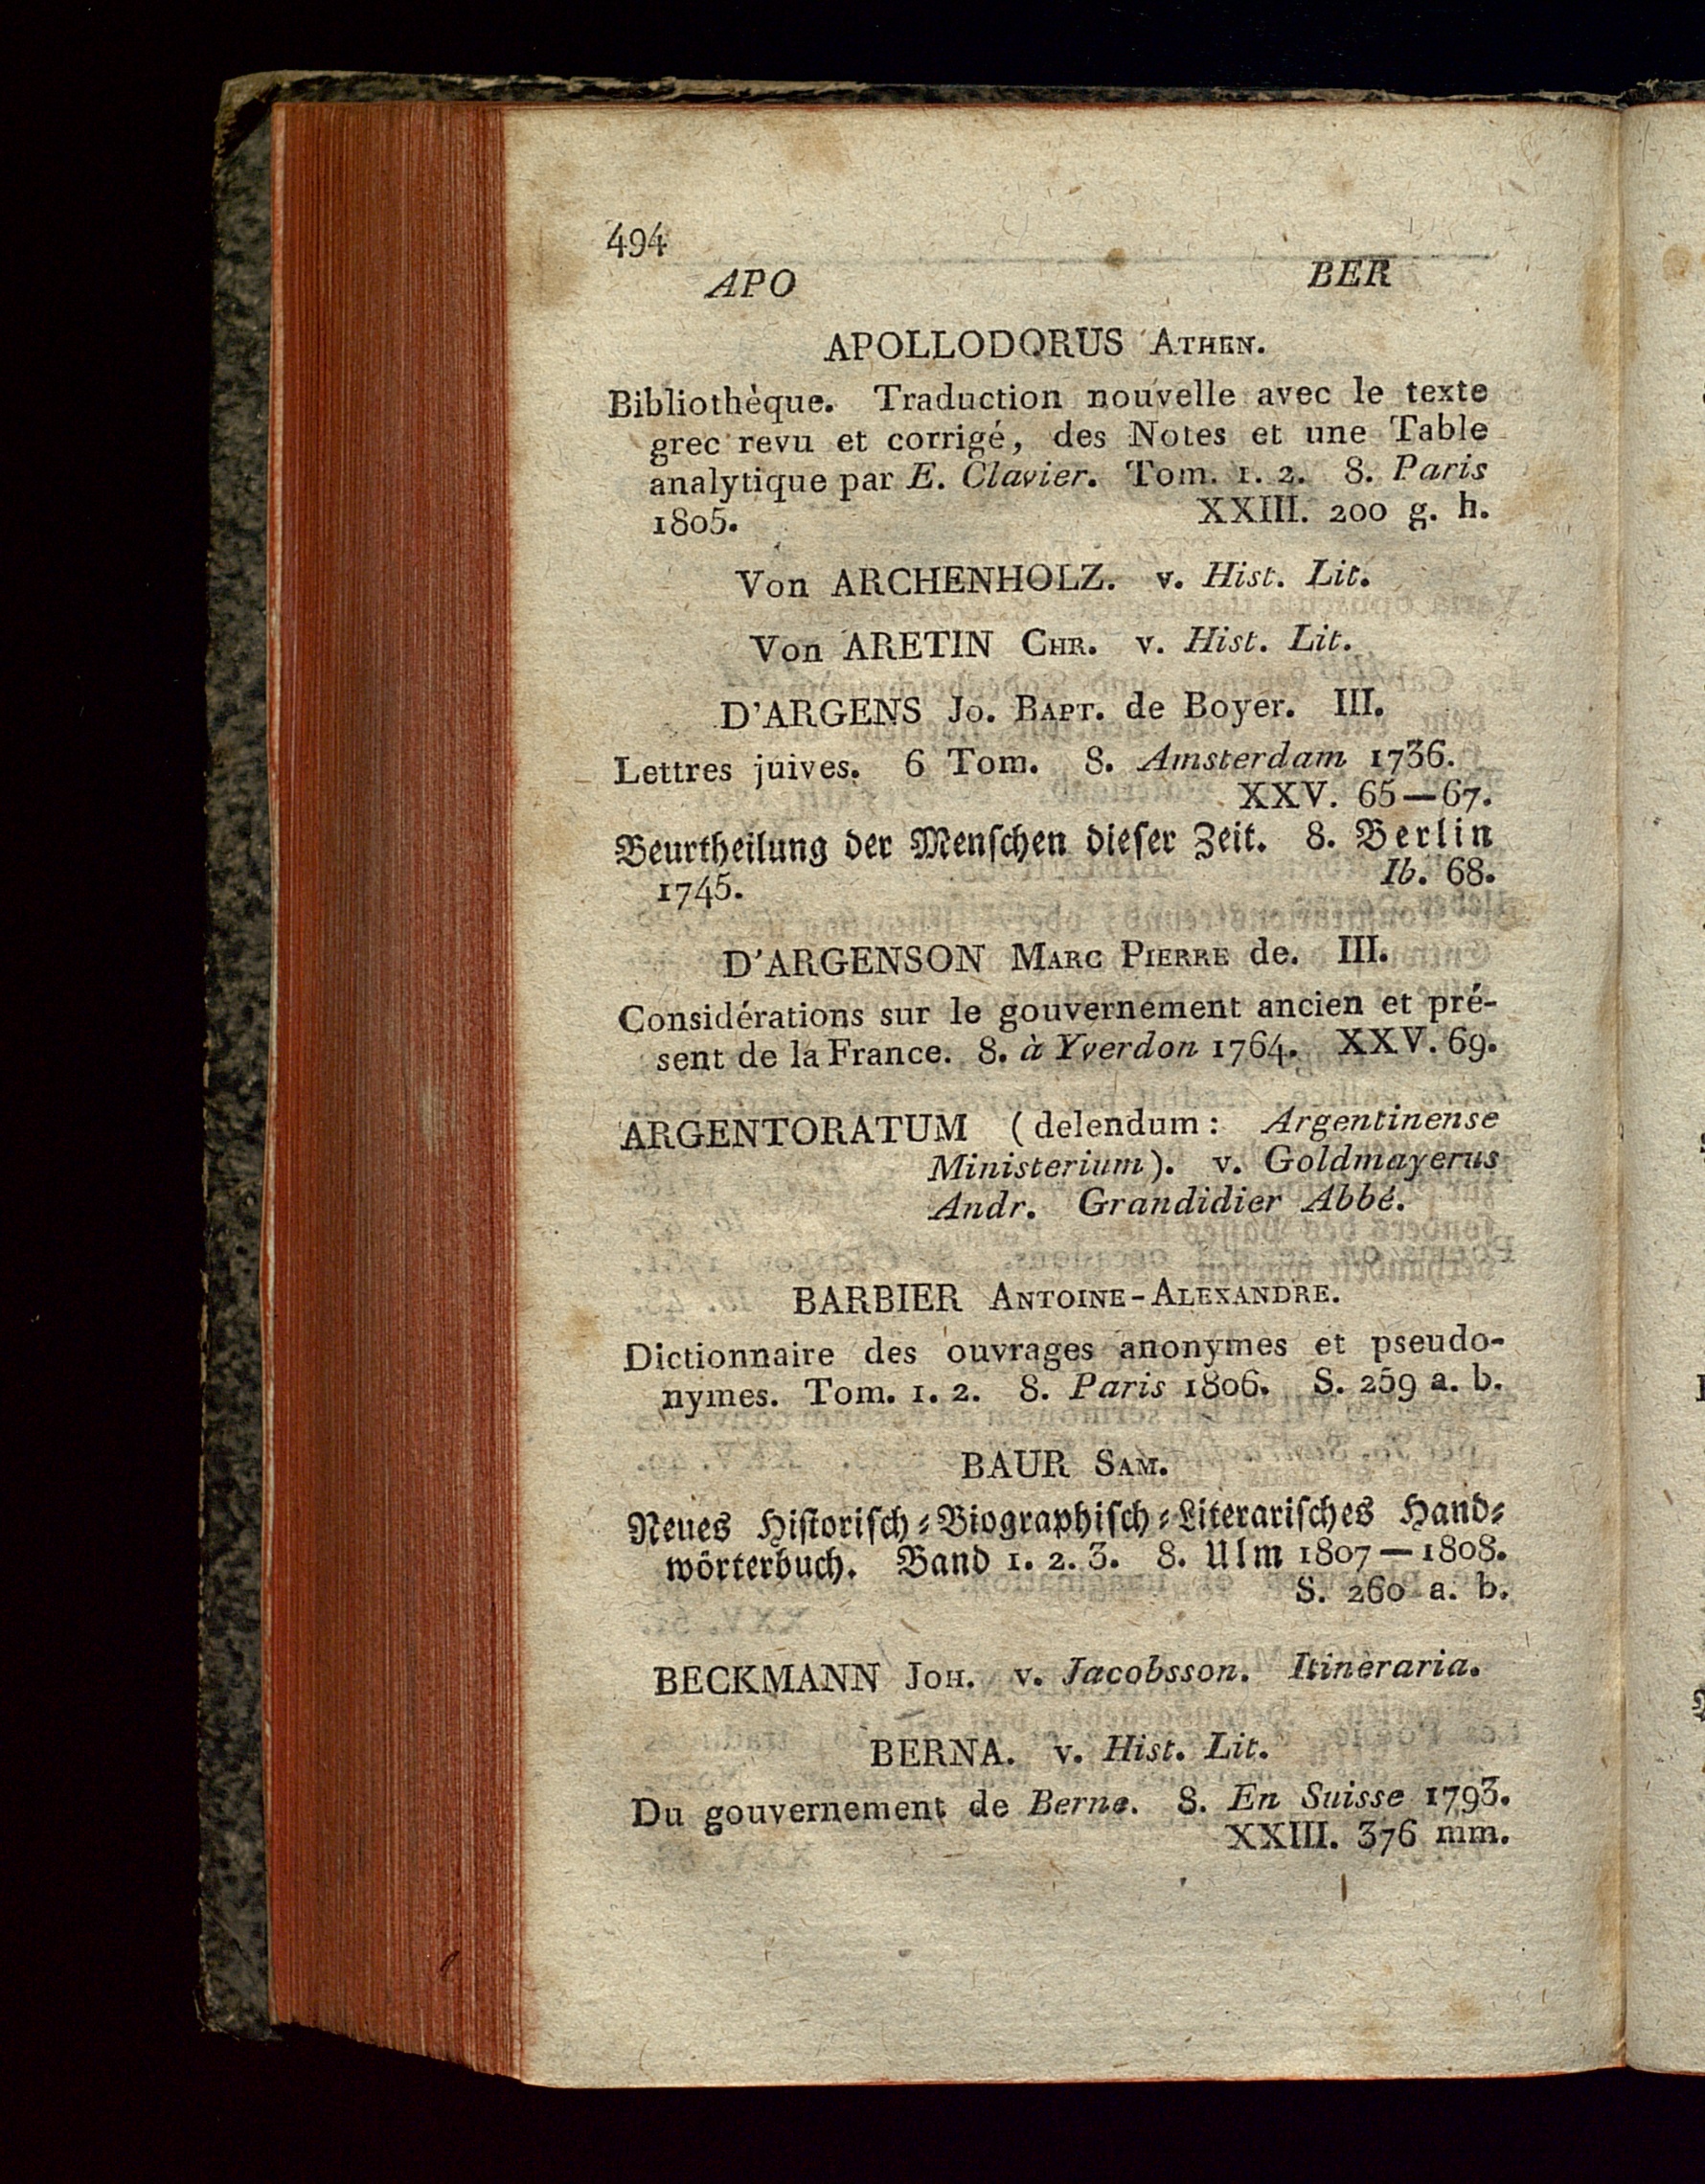 494
APO BER
APOLLODORUS ATHEN.
Bibliothèque. Traduction nouvelle avec le texte
grec revu et corrigé, des Notes et une Table
analytique par E. Clavier. Tom. 1. 2. 8. Paris
1805. XXIII. 200 g. h.
Von ARCHENHOLZ. v. Hist. Lit.
Von ARETIN CHR. v. Hist. Lit.
D'ARGENS JO. BAPT. de Boyer. III.
Lettres juives. 6 Tom. 8. Amsterdam 1736.
XXV. 65—67.
Beurtheilung der Menſchen dieſer Zeit. 8. Berlin
1745. Ib. 68.
D'ARGENSON MARC PIERRE de. III.
Considérations sur le gouvernement ancien et pré-
sent de la France. 8. à Yverdon 1764. XXV. 69.
ARGENTORATUM (delendum: Argentinense
Ministerium). v. Goldmayerus
Andr. Grandidier Abbé.
BARBIER ANTOINE-ALEXANDRE.
Dictionnaire des ouvrages anonymes et pseudo-
nymes. Tom. 1. 2. 8. Paris 1806. S. 259 a. b.
BAUR SAM.
Neues Hiſtoriſch⸗Biographiſch⸗Literariſches Hand⸗
wörterbuch. Band 1. 2. 3. 8. Ulm 1807—1808.
S. 260 a. b.
BECKMANN JOH. v. Jacobsson. Itineraria.
BERNA. v. Hist. Lit.
Du gouvernement de Berne. 8. En Suisse 1793.
XXIII. 376 mm.